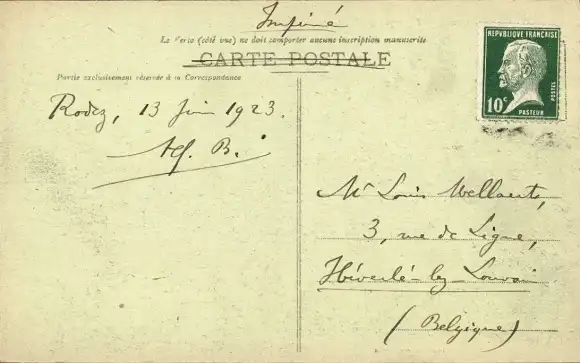 Imprimé
Le Verso (côté vue) ne doit comporter aucune inscription manuscrite
CARTE POSTALE
Partie exclusivement réservée à la Correspondance
REPUBLIQUE FRANÇAISE
10c
POSTES
PASTEUR
Rodez, 13 Juin 1923.
Alf. B.
Mr Louis Wellaerts,
3, rue de Ligne,
Héverlé-lez-Louvain
(Belgique)